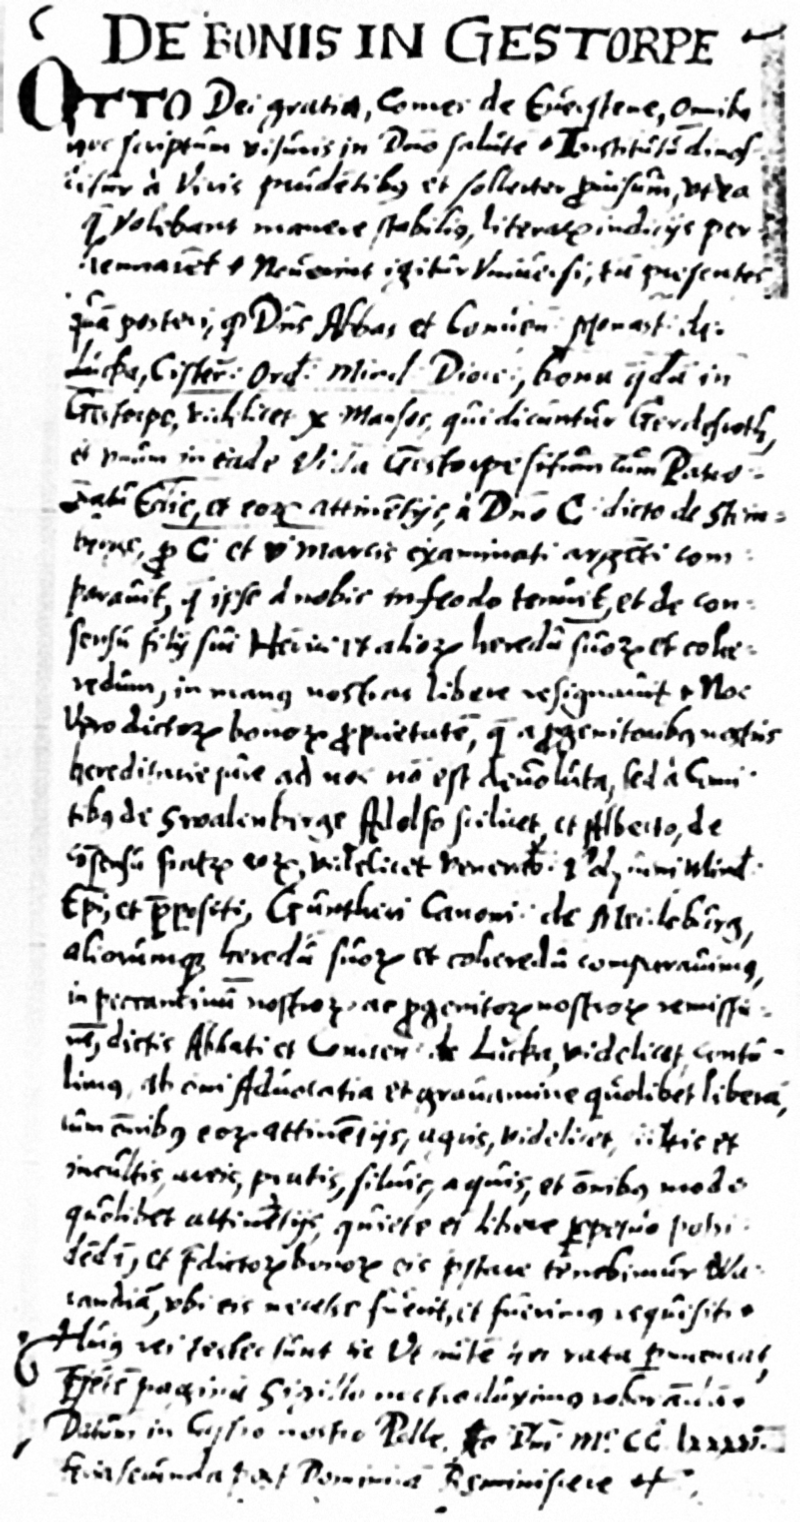 DE BONIS IN GESTORPE
OTTO Dei gratia, Comes de Euerstene, Omnibꝫ
hoc scriptum visuris in Dno salute. Institutū
à Viris prudētibꝫ et sollerter ꝓuisum, vt ea
q̄ volebant manere stabilia, literaꝝ indicijs per-
hennarēt. Nouerint igitur Vniuersi, tā presentes
quā posteri, qꝫ Dn̄s Abbas et Conuen: Monast: de
Lucka, Cisterc: Ord: Mind: Dioec:, bona q̄dā in
Gestorpe, videlicet x Mansos, qui dicuntur Gerdesroth,
et vnum in eadē Villa Gestorpe situm cum Patro-
natu Ecclie, et eoꝝ attinētijs, à Dno C dicto de Stem-
, ꝓ C et v marcis examinati argēti com-
parauit, q̄ ipse à nobis in feodo tenuit, et de con-
sensu filij sui Henrici et alioꝝ heredū suoꝝ et cohe-
redum, in manꝫ nostras libere resignauit. Nos
Vero dictoꝝ bonoꝝ ꝓprietatē, q̄ a ꝓgenitoribꝫ nostris
hereditario iure ad nos nō est deuoluta, sed à Comi-
tibꝫ de Swalenberge Adolfo scilicet, et Alberto, de
cōsensu fratꝝ eoꝝ, videlicet Venerab: Mind:
Epi, et p̄positi, Guntheri Canoni: de Meideburg,
aliorumqꝫ heredū suoꝝ et coheredū comparauimꝫ,
in peccaminū nostroꝝ ac ꝓgenitoꝝ nostroꝝ remissio-
nē, dictis Abbati et Conuen: de Lucka, videlicet, contu-
limꝫ, ab omi Aduocatia et grauamine quolibet liberā,
cum omibꝫ eoꝝ attinētijs, agris, videlicet, cultis et
incultis, areis, pratis, siluis, aquis, et omibꝫ modo
quolibet attinētijs, quiete et libere ꝑpetuo possi-
dēdā, et p̄dictoꝝ bonoꝝ eis p̄stare tenebimur Wa-
randiā, vbi eis necesse fuerit, et fuerimꝫ requisiti.
Huiꝫ rei testes sunt &c Vt autē hec rata ꝑmaneat,
p̄sētē paginā Sigillo nostro duximꝫ roborandā.
Datum in Castro nostro Polle, Ao Dni Mo CC lxxxvi
feria secunda post Dominicā Reminiscere